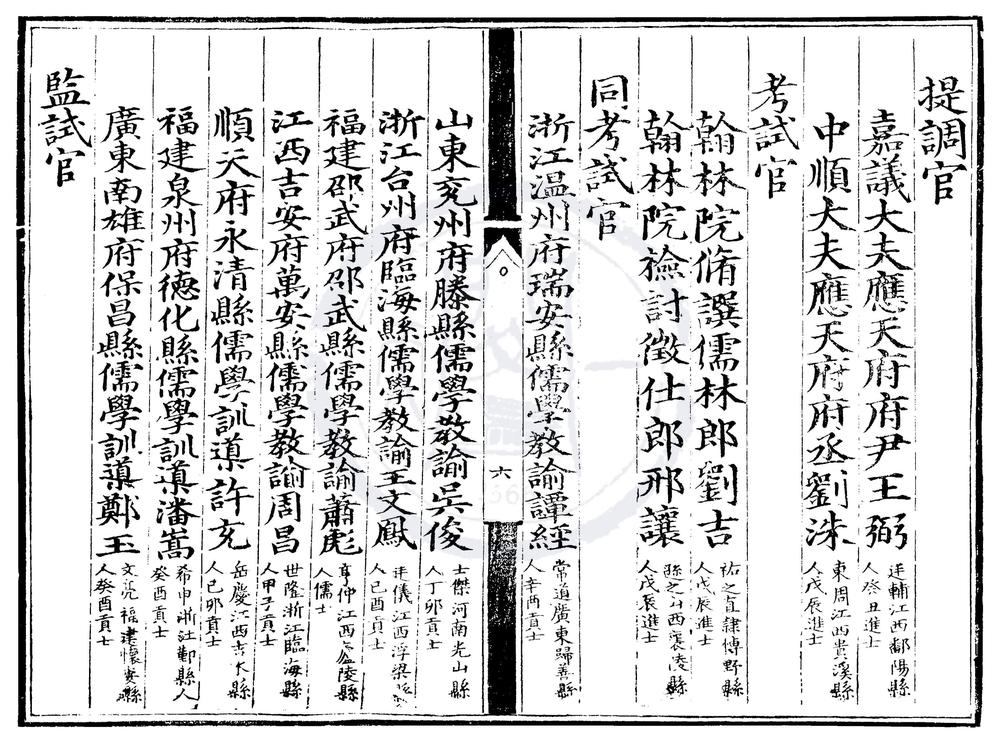 提調官
嘉議大夫應天府府尹王弼 廷輔江西鄱陽縣人癸丑進士
中順大夫應天府府丞劉洙 東周江西貴溪縣人戊辰進士
考試官
翰林院脩譔儒林郎劉吉 祐之直隸博野縣人戊辰進士
翰林院檢討徵仕郎邢讓 遜之山西襄陵縣人戊辰進士
同考試官
浙江温州府瑞安縣儒學教諭譚經 常道廣東歸善縣人辛酉貢士
六
山東兖州府滕縣儒學教諭吳俊 士傑河南光山縣人丁卯貢士
浙江台州府臨海縣儒學教諭王文鳳 廷儀江西浮梁縣人己酉貢士
福建邵武府邵武縣儒學教諭蕭彪 亨仲江西廬陵縣人儒士
江西吉安府萬安縣儒學教諭周昌 世隆浙江臨海縣人甲子貢士
順天府永清縣儒學訓導許充 岳慶江西吉水縣人己卯貢士
福建泉州府德化縣儒學訓導潘嵩 希申浙江鄞縣人癸酉貢士
廣東南雄府保昌縣儒學訓導鄭玉 文亮福建懷安縣人癸酉貢士
監試官